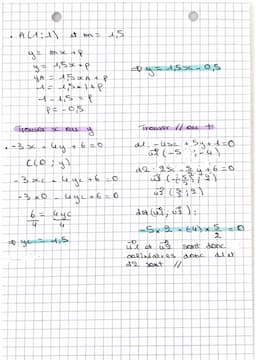 • A(1;1) et m = 1,5
y = mx + p
y = 1,5x + p
yA = 1,5xA + p
1 = 1,5×1+p
1-1,5 = p
p = -0,5
⇒ y = 1,5x - 0,5
Trouver x ou y
• -3x - 4y + 6 = 0
C(0 ; y)
-3xc - 4yc + 6 = 0
-3×0 - 4yc + 6 = 0
6/4 = 4yc/4
⇒ yc = 1,5
Trouver // ou
d1: -4x + 5y + 1 = 0
u1 (-5 ; -4)
d2: 2x - 5/2 y + 6 = 0
u2 (-(-5/2) ; 2)
u2 (5/2 ; 2)
det(u1; u2) :
-5×2 - (-4) × 5/2 = 0
u1 et u2 sont donc
colinéaires donc d1 et
d2 sont //